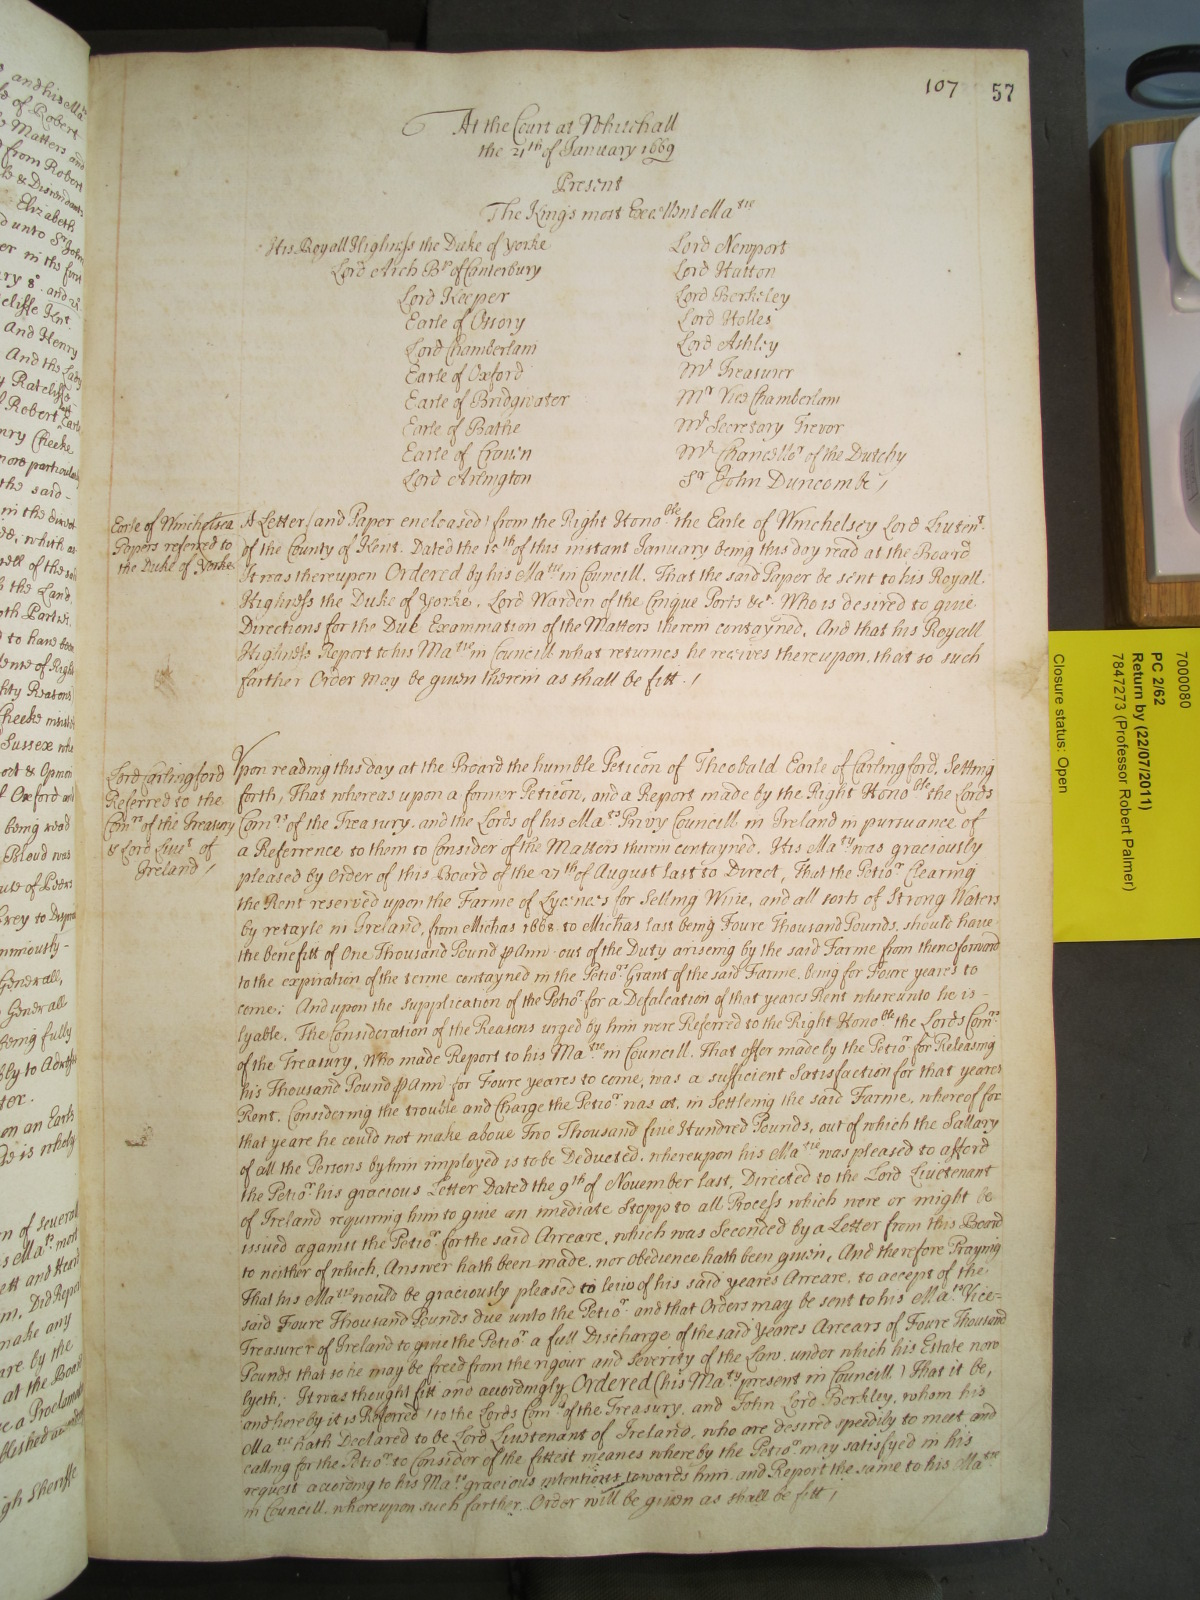 107 57
At the Court at Whitehall
the 21th of January 1669
Present
The Kings most Excellent Matie
His Royall Highness the Duke of Yorke
Lord Arch Bp of Canterbury
Lord Keeper
Earle of Ossory
Lord Chamberlain
Earle of Oxford
Earle of Bridgwater
Earle of Bathe
Earle of Craven
Lord Arlington
Lord Newport
Lord Hatton
Lord Berkeley
Lord Holles
Lord Ashley
Mr Treasurer
Mr Vice Chamberlain
Mr Secretary Trevor
Mr Chancellor of the Dutchy
Sr John Duncombe /
Earle of Winchelsea
Papers referred to
the Duke of Yorke
A Letter (and Paper enclosed) from the Right Honoble the Earle of Winchelsey Lord Liutent
of the County of Kent. Dated the 15th of this instant January being this day read at the Board
It was thereupon Ordered by his Matie in Councill, That the said Paper be sent to his Royall
Highness the Duke of Yorke, Lord Warden of the Cinque Ports &c. Who is desired to give
Directions for the Due Examination of the Matters therein contayned, And that his Royall
Highness Report to his Matie in Councill what returnes he receives thereupon, that so such
farther Order may be given therein as shall be fitt /
Lord Carlingford
Referred to the
Comrs of the Treasury
& Lord Liut of
Ireland /
Upon reading this day at the Board the humble Peticon of Theobald Earle of Carlingford, Setting
forth, That whereas upon a former Peticon, and a Report made by the Right Honoble the Lords
Comrs of the Treasury, and the Lords of his Mats Privy Councill in Ireland in pursuance of
a Referrence to them to Consider of the Matters therein contayned, His Maty was graciously
pleased by Order of this Board of the 27th of August last to Direct, That the Petior Clearing
the Rent reserved upon the Farme of Lycences for Selling Wine, and all sorts of Strong Waters
by retayle in Ireland, from Michas 1668 to Michas last being Foure Thousand Pounds, should have
the benefitt of One Thousand Pound p Ann out of the Duty ariseing by the said Farme from thenceforward
to the expiration of the terme contayned in the Petiors Grant of the said Farme, being for Foure yeares to
come; And upon the supplication of the Petior for a Defalcation of that yeares Rent whereunto he is
lyable, The Consideration of the Reasons urged by him were Referred to the Right Honoble the Lords Comrs
of the Treasury, Who made Report to his Matie in Councill, That offer made by the Petior for Releasing
his Thousand Pound p Ann for Foure yeares to come, was a sufficient Satisfaction for that yeares
Rent, Considering the trouble and Charge the Petior was at, in Settleing the said Farme, whereof for
that yeare he could not make above Two Thousand five Hundred Pounds, out of which the Sallary
of all the Persons by him imployed is to be Deducted, whereupon his Matie was pleased to afford
the Petior his gracious Letter Dated the 9th of November last, Directed to the Lord Liuetenant
of Ireland requiring him to give an imediate Stopp to all Process which were or might be
issued against the Petior for the said Arreare, which was Seconded by a Letter from this Board
to neither of which, Answer hath been made, nor Obedience hath been given, And therefore Praying
That his Matie would be graciously pleased to leiw of his said yeares Arreare, to accept of the
said Foure Thousand Pounds due unto the Petior and that Orders may be sent to his Mats Vice-
Treasurer of Ireland to give the Petior a full Discharge of the said yeares Arrears of Foure Thousand
Pounds that so he may be freed from the rigour and severity of the Law, under which his Estate now
lyeth. It was thought fitt and accordingly Ordered (his Maty present in Councill) That it be,
and hereby it is Referred to the Lords Comrs of the Treasury, and John Lord Berkley, whom his
Matie hath Declared to be Lord Liuetenant of Ireland, who are desired speedily to meet and
calling for the Petior to Consider of the fittest meanes whereby the Petior may satisfyed in his
request according to his Mats gracious intentions towards him, and Report the same to his Matie
in Councill, whereupon such farther Order will be given as shall be fitt /
7000080
PC 2/62
Return by (22/07/2011)
7847273 (Professor Robert Palmer)
Closure status: Open